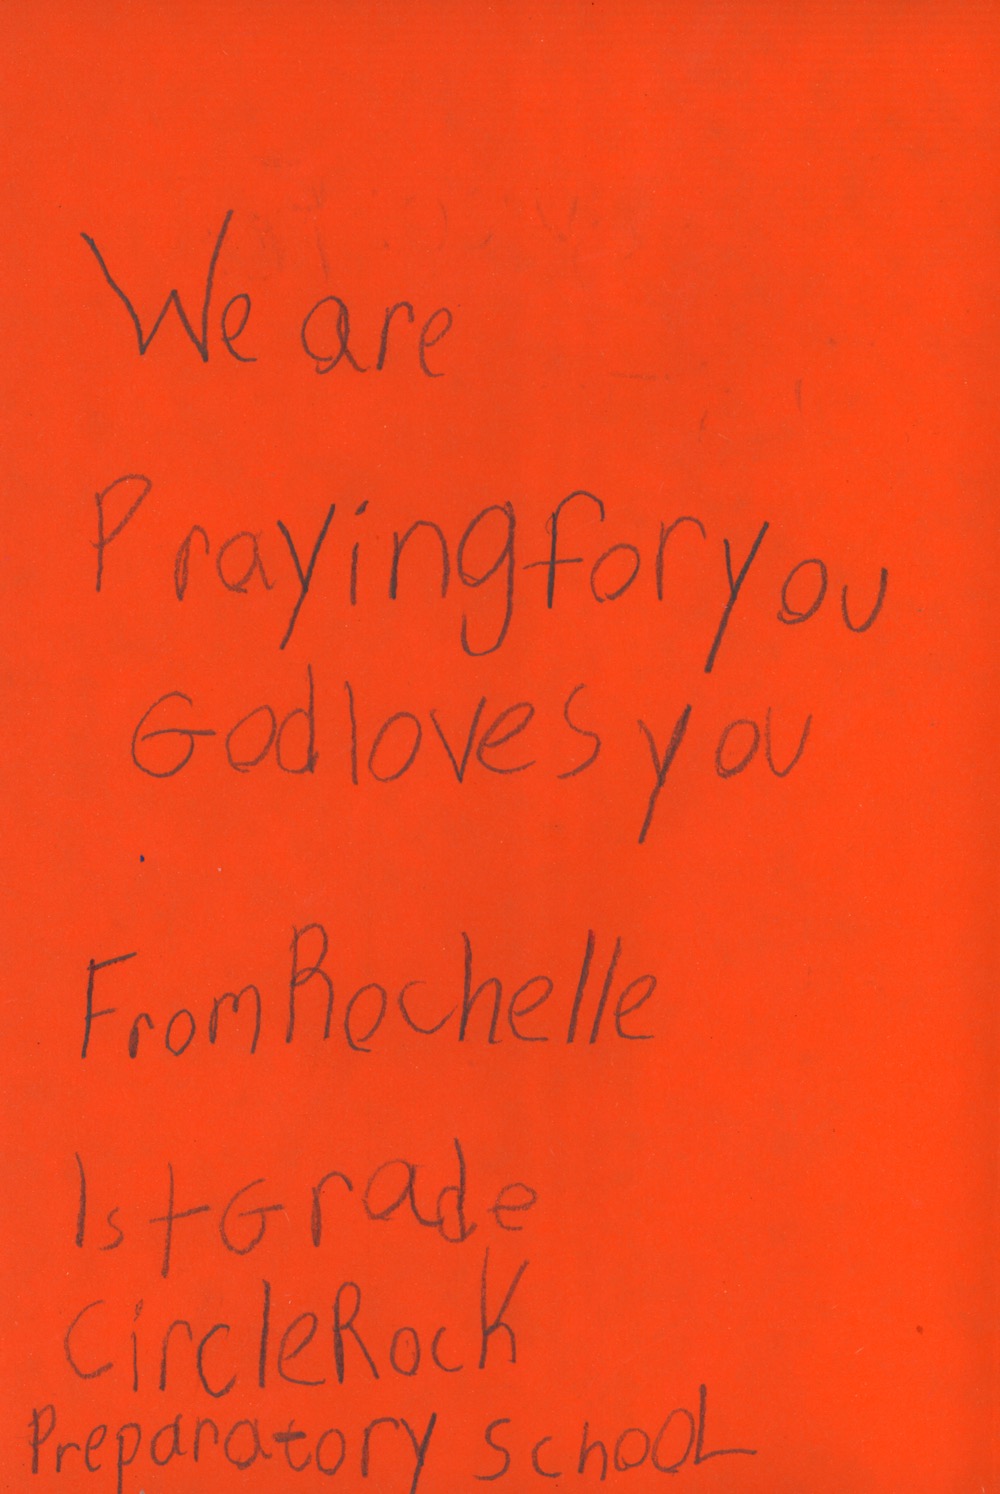 We are
Praying for you
God loves you
From Rochelle
1st Grade
Circle Rock
Preparatory School